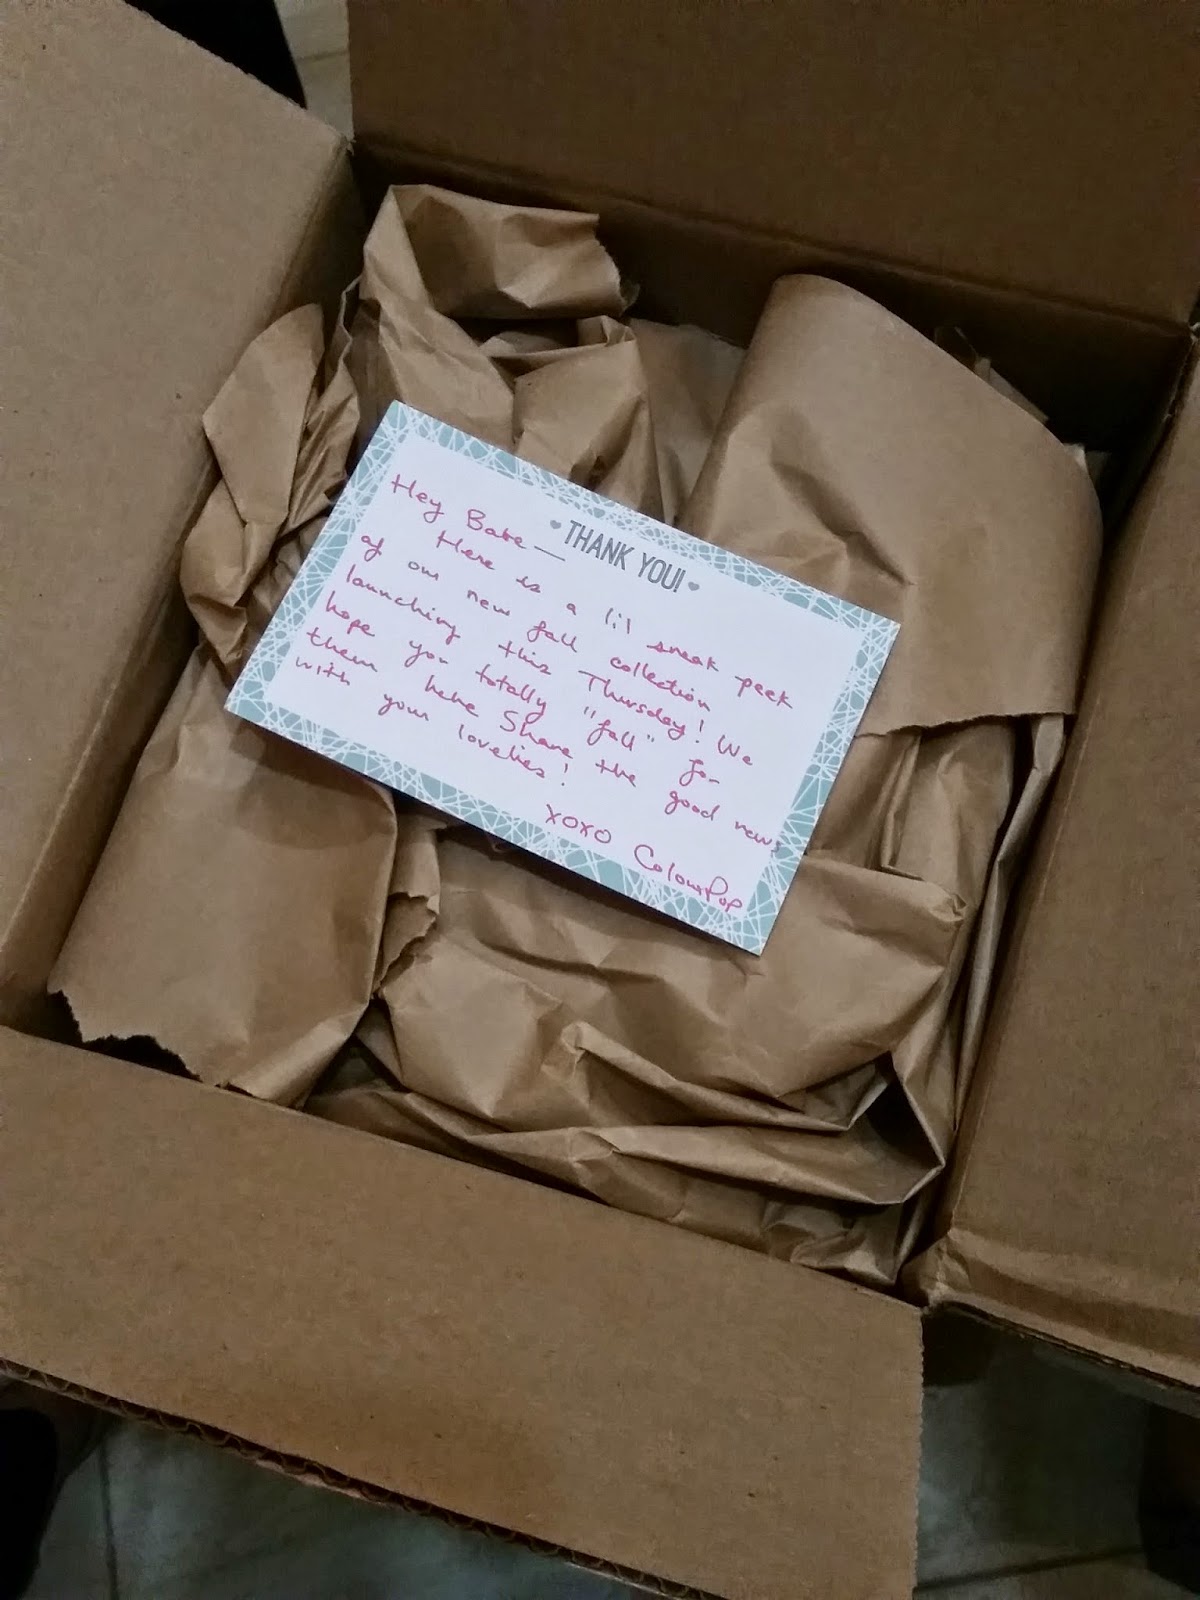 THANK YOU!
Hey Babe —
Here is a lil sneak peek
of our new fall collection
launching this Thursday! We
hope you totally "fall" for
them hehe Share the good news
with your lovelies!
XOXO ColourPop